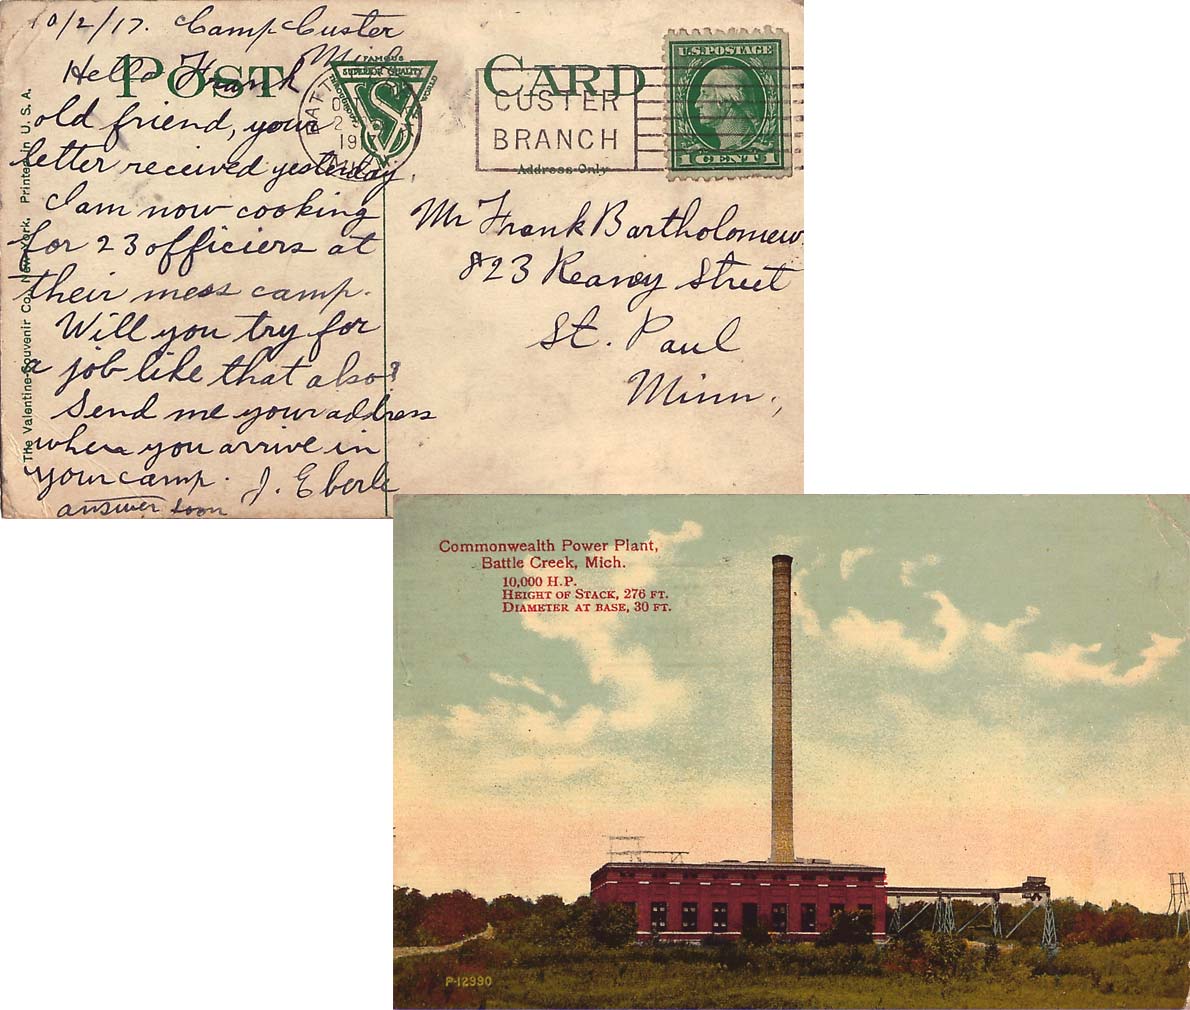 10/2/17. Camp Custer
Mich
POST CARD
Hello Frank
old friend, your
letter received yesterday.
I am now cooking
for 23 officiers at
their mess camp.
Will you try for
a job like that also?
Send me your address
when you arrive in
your camp. J. Eberle
answer soon
The Valentine-Souvenir Co., New York. Printed in U. S. A.
FAMOUS
SUPERIOR QUALITY
THROUGHOUT
WORLD
BATT
1917
CUSTER
BRANCH
Address Only
U.S. POSTAGE
1 CENT 1
Mr Frank Bartholomew
823 Reaney Street
St. Paul
Minn.,
Commonwealth Power Plant,
Battle Creek, Mich.
10,000 H.P.
HEIGHT OF STACK, 276 FT.
DIAMETER AT BASE, 30 FT.
P-12990